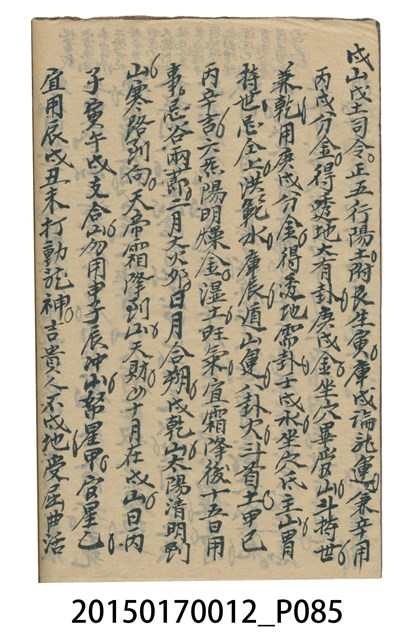 戌山戌土司令正五行陽土附艮生寅庫戌論龍運兼辛用
丙戌分金得遯地大有卦庚戌金坐穴畢度山斗持世
兼乾用庚戌分金得遯地需卦壬戌水坐穴氐主山胃
持世忌金上洪範水庫辰遁山運八卦火斗首土甲己
丙辛吉六炁陽明燥金湿土旺氣宜霜降後十五日用
事忌谷雨節二月大火卯日月合朔戌乾山太陽清明到
山寒路到向天帝霜降到山天財四十月在戌山日丙
子寅午戌支合山勿用申子辰冲山帑星甲官星乙
宜用辰戌丑未打動龍神吉貴人不戌地受生曲活
20150170012_P085